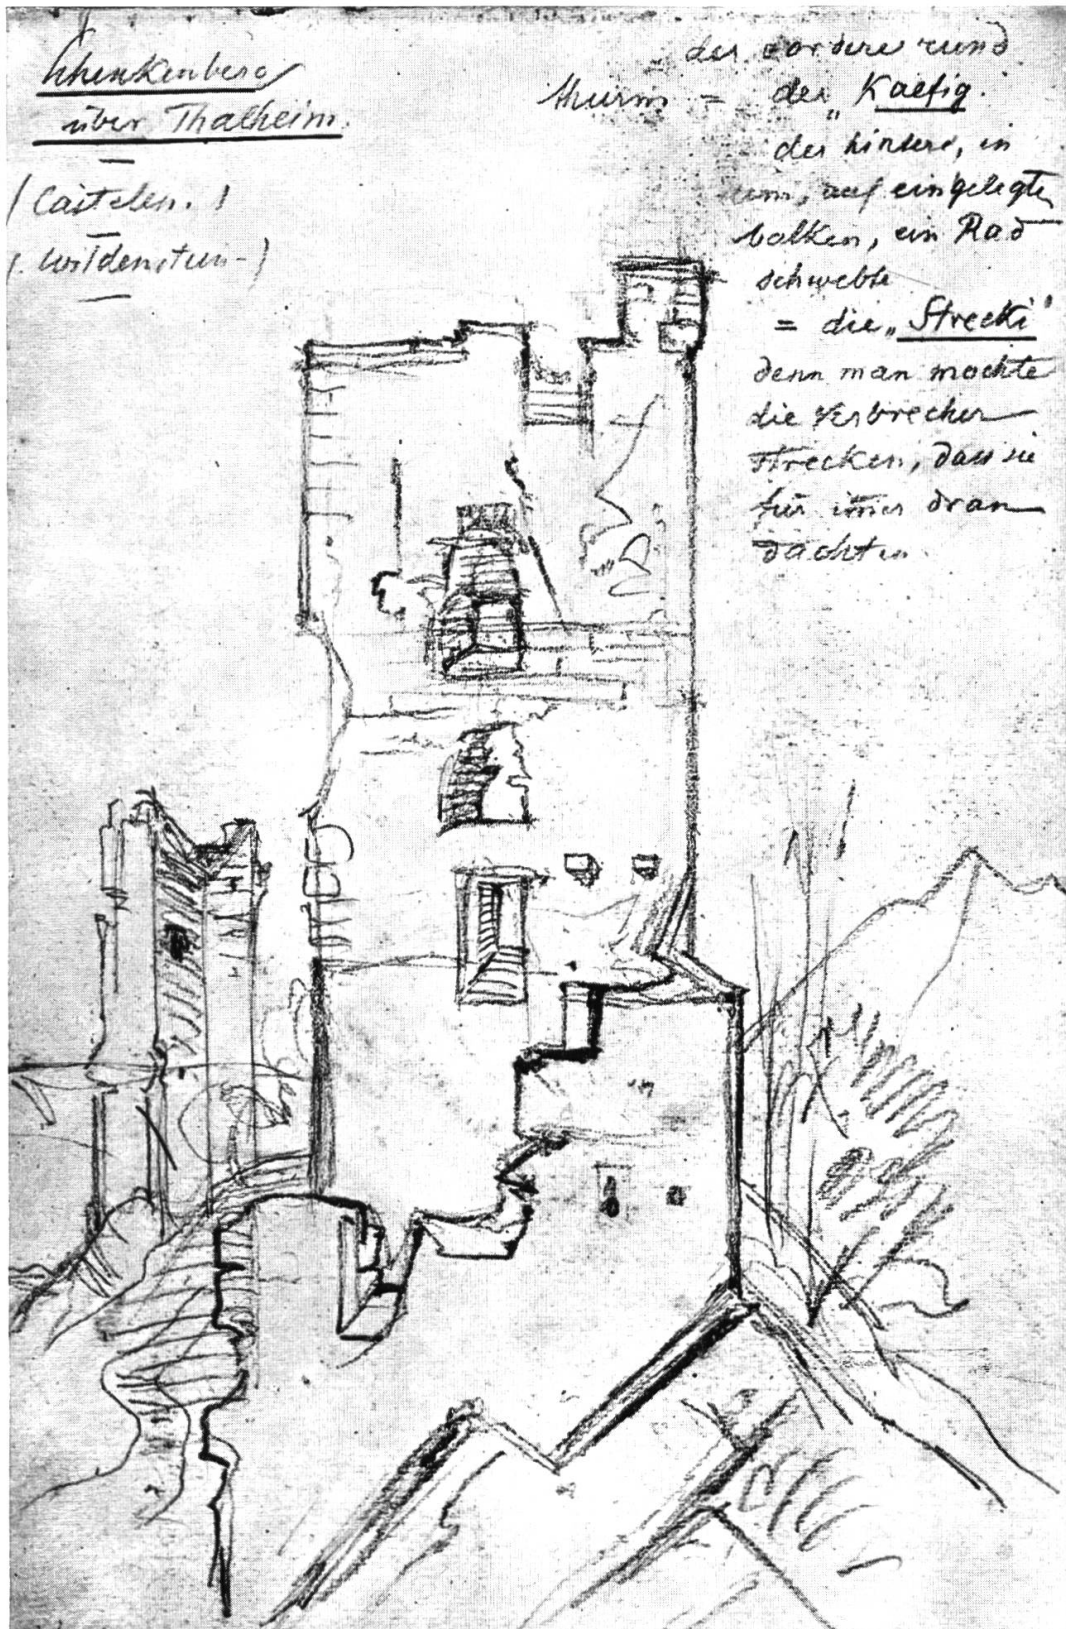 Schenkenberg
über Thalheim.
(Castelen.)
(Wildenstein-)
der vordere rund
thurm = der „Kaefig.
der hintere, in
auf eingelegte
balken, ein Rad
schwebte
= die „Strecki"
denn man mochte
die Verbrecher
strecken, dass sie
für im̅er dran
dachten.